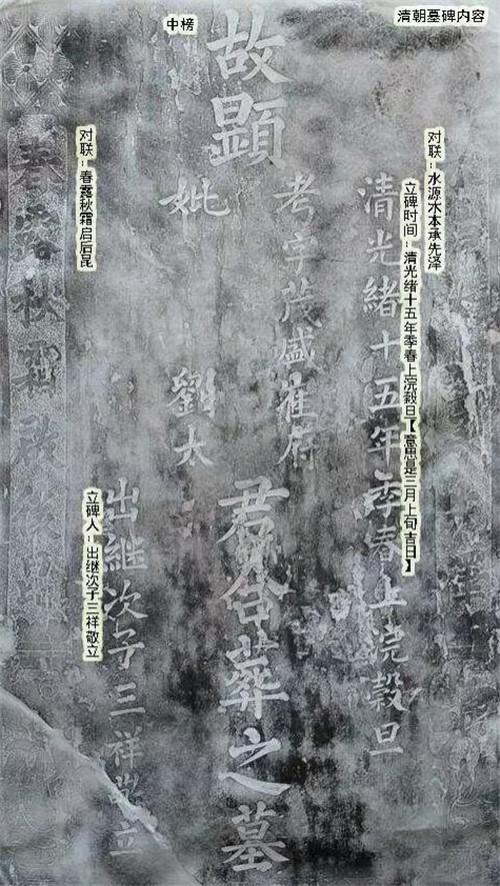 清朝墓碑内容
中榜
对联：水源木本承先泽
立碑时间：清光绪十五年季春上浣穀旦【意思是三月上旬吉日】
清光緒十五年季春上浣穀旦
故顯
考字茂盛崔府
妣
劉太
君合葬之墓
立碑人：出继次子三祥敬立
出継次子三祥敬立
对联：春露秋霜启后昆
春露秋霜